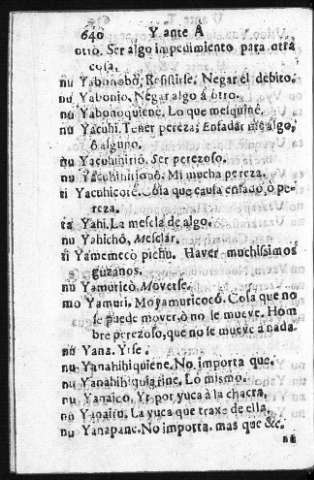 640 Y ante A
otro. Ser algo impedimiento para otra
cosa.
nu Yabonobò, Resistirse. Negar el debito.
nu Yabonio, Negar algo à otro.
nu Yabonoquienè. Lo que mesquinè.
nu Yacuhi. Tener pereza; Enfadar me algo,
ò alguno.
nu Yacuhiriiò. Ser perezoso.
nu Yacuhirionò. Mi mucha pereza.
ti Yacuhicorè. Cosa que causa enfado ò pe-
reza.
ta Yahi. La mescla de algo.
nu Yahichò, Mesclar.
ti Yamemecò pichu. Haver muchissimos
guzanos.
nu Yamuricò Moverse.
mo Yamuri. Moyamuricocò. Cosa que no
se puede mover, ò no se mueve. Hom
bre perezoso, que no se mueve à nada.
nu Yana. Yrse.
nu Yanahibiquiene. No importa que.
nu Yanahiquiarine. Lo mismo.
nu Yanaico, Yr por yuca à la chacra,
nu Yanairu. La yuca que traxe de ella.
nu Yanapane. No importa. mas que &c.
nu